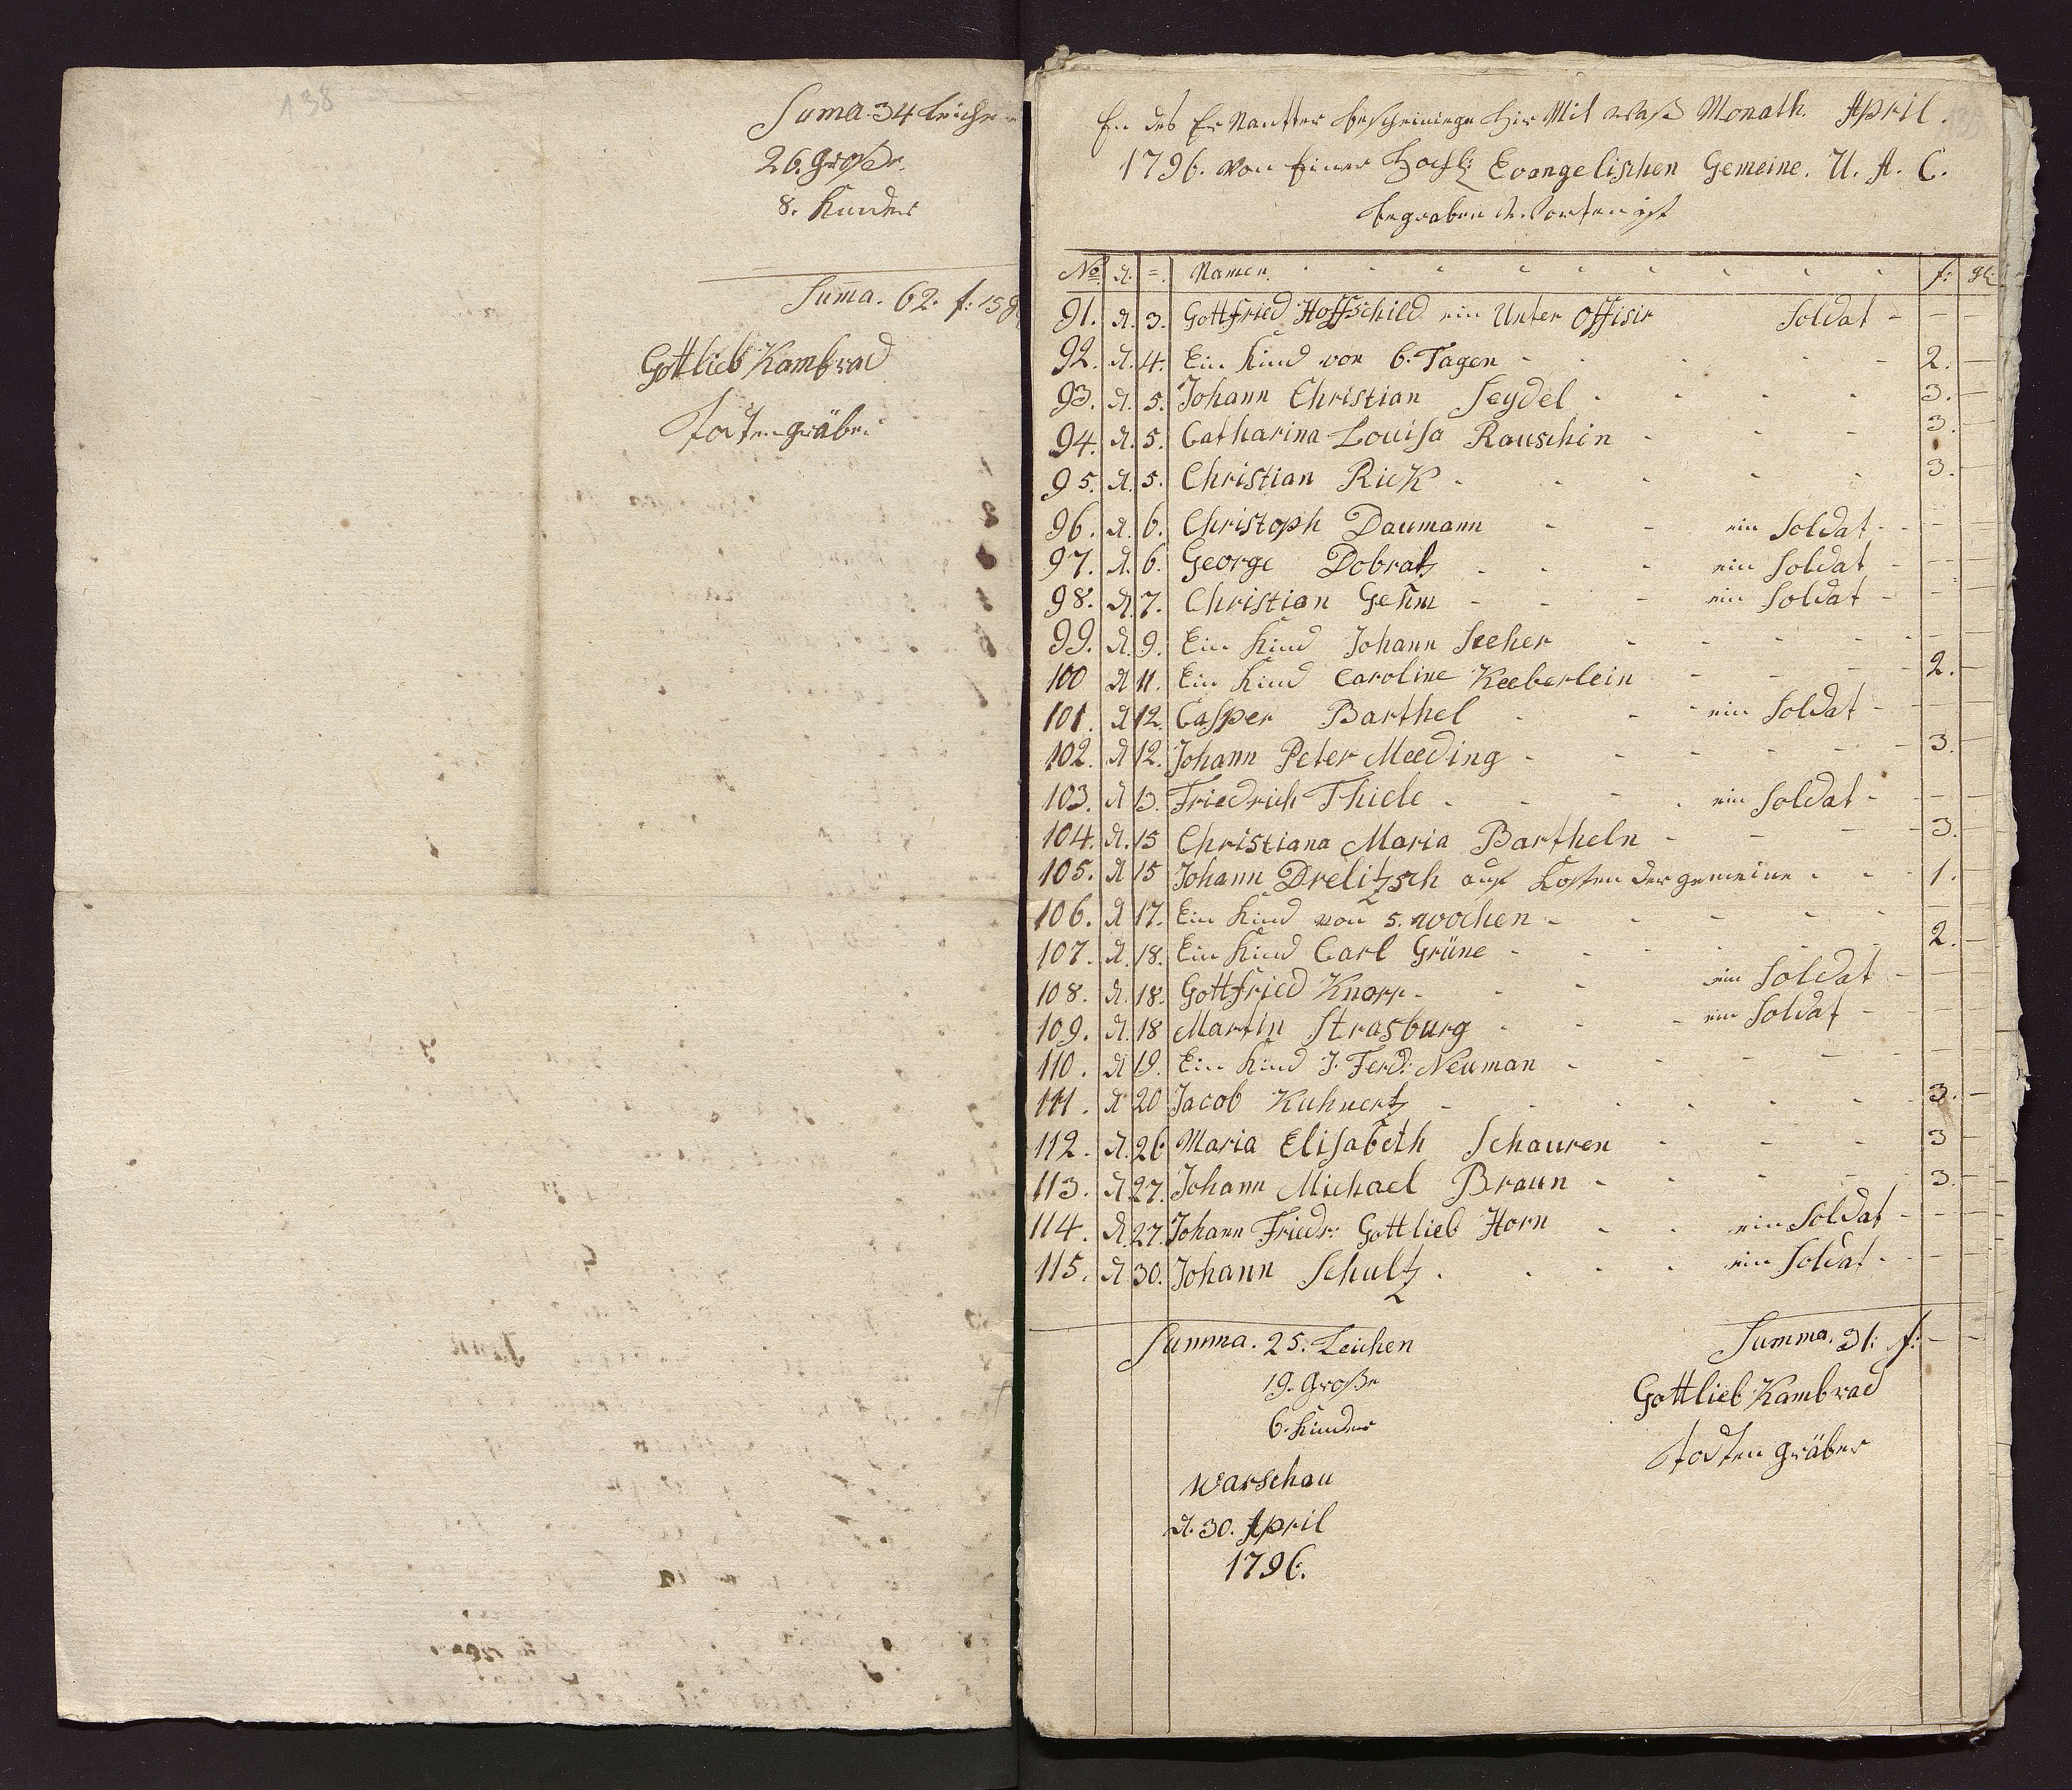 138
Suma. 34 Leichen
26. Große.
8. Kinder
Suma. 62. f: 15 g
Gottlieb Kambrad
Todten gräber
En des Er Nantter bescheinige Hir Mit waß Monath. April.
1796. von Einer Hochl: Evangelischen Gemeine. U. A. C.
begraben Worten ist
No. d. =. Namen. f: gl:
91. d. 3. Gottfried Hoffschild ein Unter Offisir Soldat - - -
92. d. 4. Ein Kind von 6. Tagen - 2. -
93. d. 5. Johann Christian Seydel - 3. -
94. d. 5. Catharina Louisa Rauschin - 3. -
95. d. 5. Christian Rick - 3. -
96. d. 6. Christoph Daumann - ein Soldat - - -
97. d. 6. George Dobratz - ein Soldat - - -
98. d. 7. Christian Gehm - ein Soldat - - -
99. d. 9. Ein Kind Johann Seeher - - -
100 d 11. Ein Kind Caroline Keeberlein - 2. -
101. d 12. Casper Barthel - ein Soldat - - -
102. d 12. Johann Peter Meeding - 3. -
103. d 13. Friedrich Thiele - ein Soldat - - -
104. d. 15 Christiana Maria Bartheln - 3. -
105. d 15 Johann Drelitzsch auf Kosten der gemeine - 1. -
106. d 17. Ein Kind von 5. wochen - - -
107. d. 18. Ein Kind Carl Grüne - 2. -
108. d. 18. Gottfried Knorr - ein Soldat - - -
109. d. 18 Martin Strasburg - ein Soldat - - -
110. d 19. Ein Kind J. Ferd: Neuman - - -
111. d 20 Jacob Kuhnertz - 3. -
112. d. 26 Maria Elisabeth Schauren - 3 -
113. d 27. Johann Michael Braun - 3. -
114. d. 27. Johann Friedr: Gottlieb Horn - ein Soldat - - -
115. d 30. Johann Schultz - ein Soldat - - -
Summa. 25. Leichen Summa. 31: f: - -
19. Große Gottlieb Kambrad
6. Kinder Todten gräber
Warschau
d. 30. April
1796.